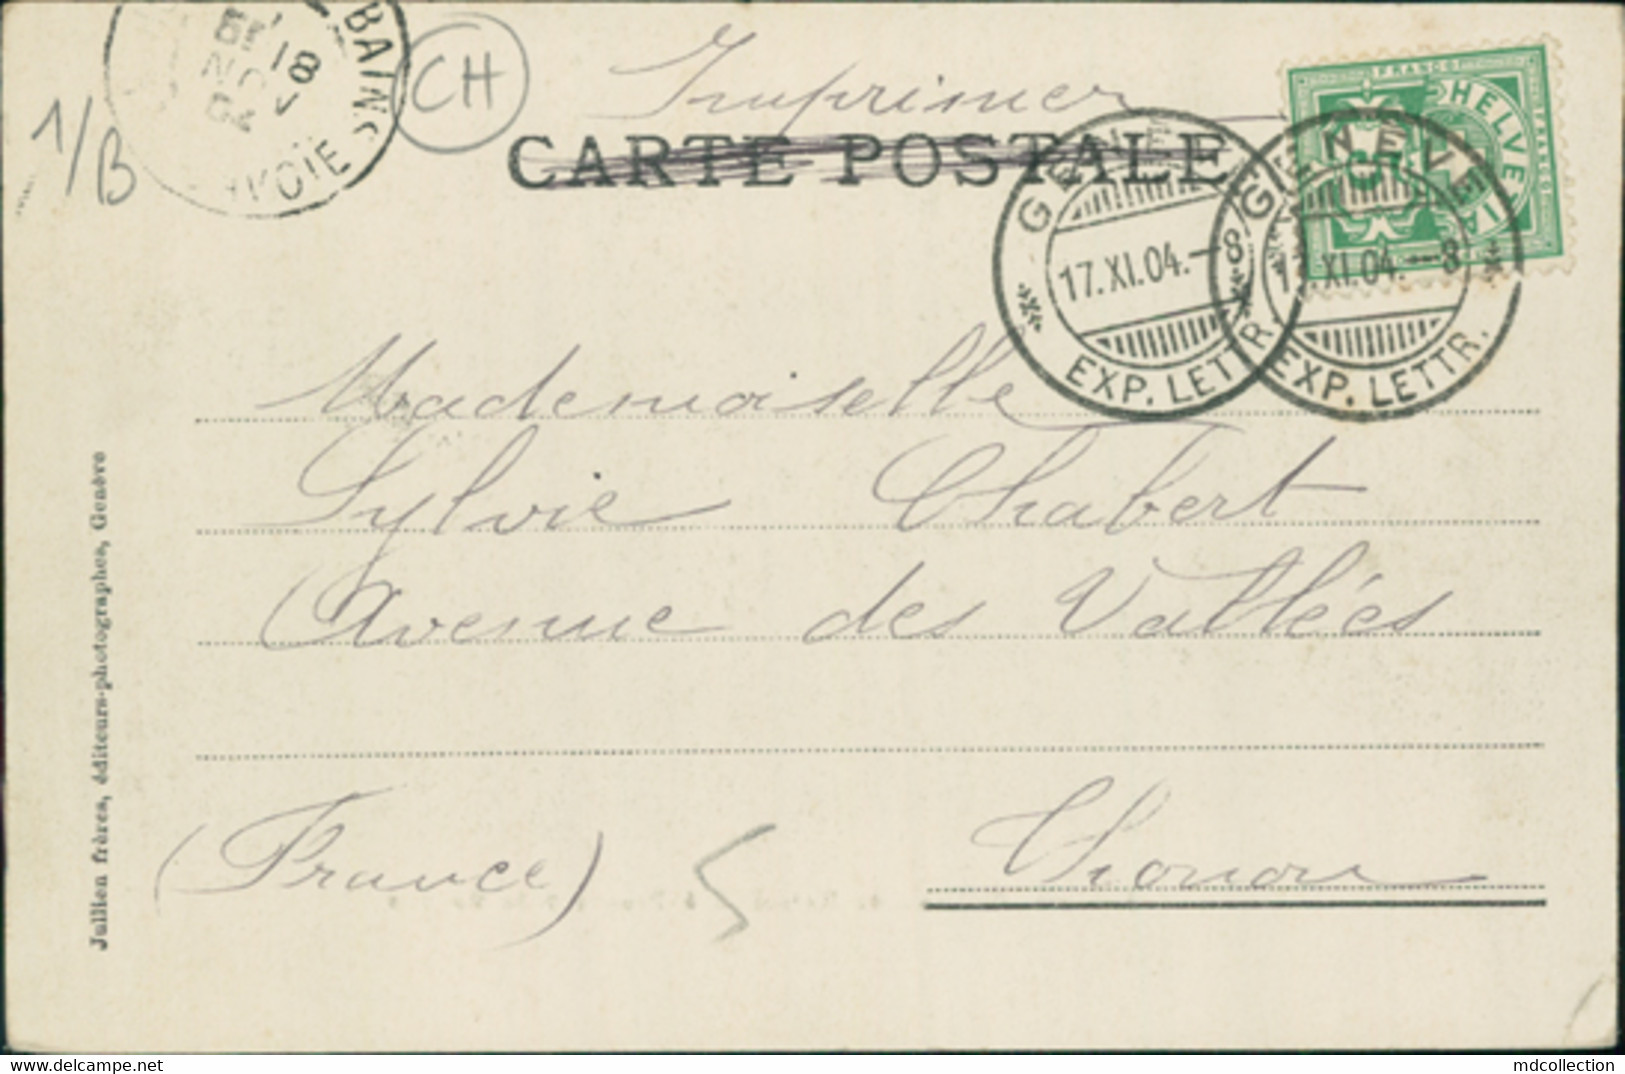 BAINS
18
NOV
04
VOIE
CH
1/B
Imprimer
CARTE POSTALE
FRANCO
HELVETIA
GENÈVE
17.XI.04.-8
EXP. LETTR.
GENÈVE
17.XI.04.-8
EXP. LETTR.
Mademoiselle
Sylvie Chabert
Avenue des Vallées
Thonon
(France)
5
Jullien frères, éditeurs-photographes, Genève
mdcollection